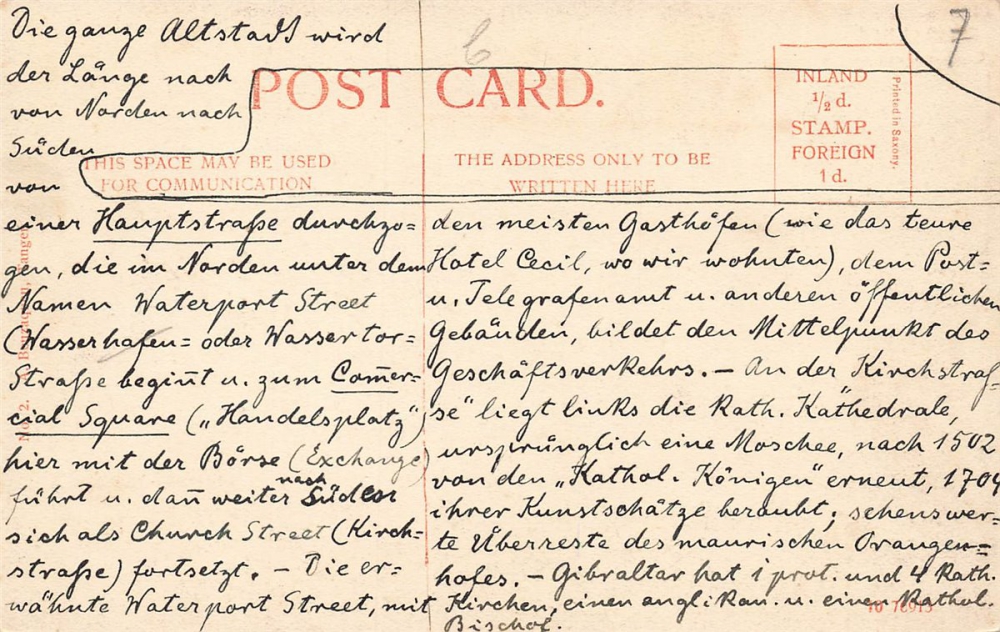 Die ganze Altstadt wird
der Länge nach
von Norden nach
Süden
von
einer Hauptstraße durchzo=
gen, die im Norden unter dem
Namen Waterport Street
(Wasserhafen= oder Wassertor=
Straße begiñt u. zum Com̃er-
cial Square („Handelsplatz“)
hier mit der Börse (Exchange)
führt u. dañ weiter nach Süden
sich als Church Street (Kirch=
straße) fortsetzt. – Die er=
wähnte Waterport Street, mit
den meisten Gasthöfen (wie das teure
Hotel Cecil, wo wir wohnten), dem Post=
u. Telegrafenamt u. anderen öffentlichen
Gebäuden, bildet den Mittelpunkt des
Geschäftsverkehrs. – An der Kirchstraß-
se“ liegt links die Kath. Kathedrale,
ursprünglich eine Moschee, nach 1502
von den „Kathol. Königen“ erneut, 1704
ihrer Kunstschätze beraubt; sehenswer=
te Überreste des maurischen Orangen=
hofes. – Gibraltar hat 1 prot. und 4 Kath.
Kirchen, einen anglikan. u. einen Kathol.
Bischof.
6
7
POST CARD.
THIS SPACE MAY BE USED
FOR COMMUNICATION
THE ADDRESS ONLY TO BE
WRITTEN HERE
INLAND
1/2 d.
STAMP.
FOREIGN
1 d.
Printed in Saxony.